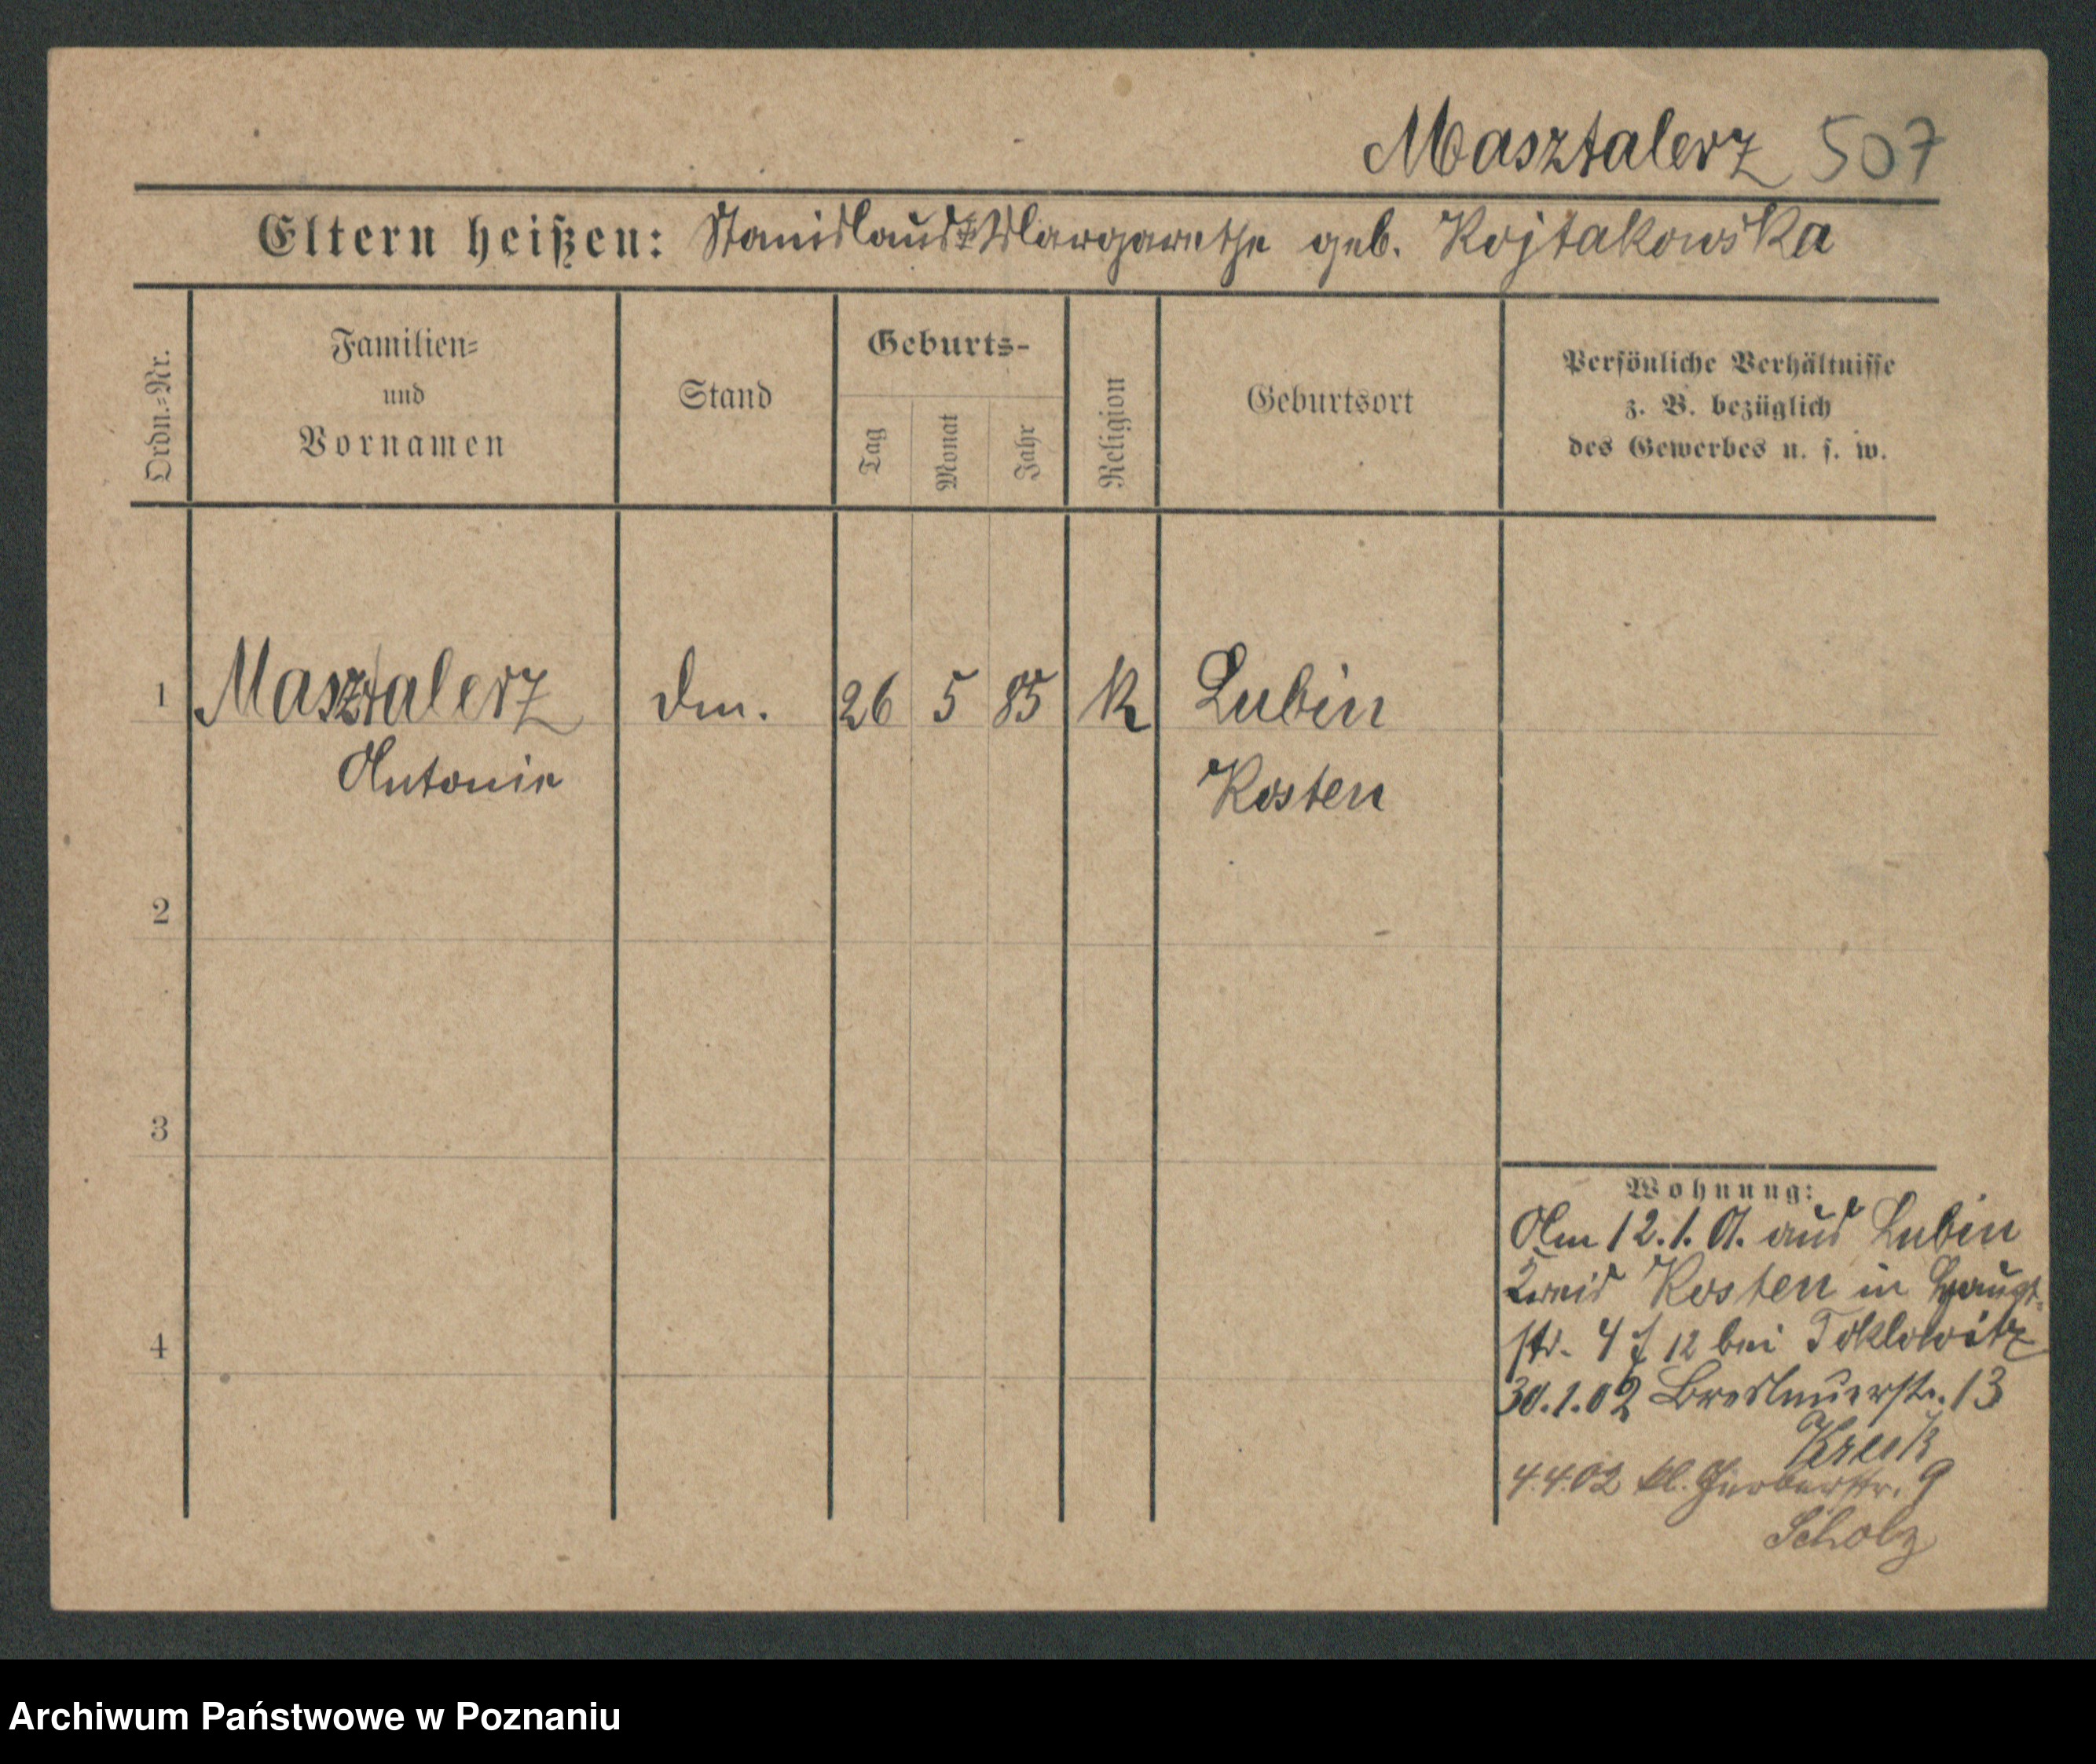 Masztalerz 507
Eltern heißen: Stanislaus & Margarethe geb. Kojtakowska
Ordn.=Nr.
Familien=
und
Vornamen
Stand
Geburts-
Tag
Monat
Jahr
Religion
Geburtsort
Persönliche Verhältnisse
z. B. bezüglich
des Gewerbes u. s. w.
1 Masztalerz dm. 26 5 85 K Lubin
Antonie Kosten
2
3
4
Wohnung:
Am 12.1.01. aus Lubin
Kreis Kosten in Haupt-
str. 4 12 bei Toklowitz
30.1.02 Breslauerstr. 13
4.4.02 kl. Gerberstr. 9
Scholz
Archiwum Państwowe w Poznaniu